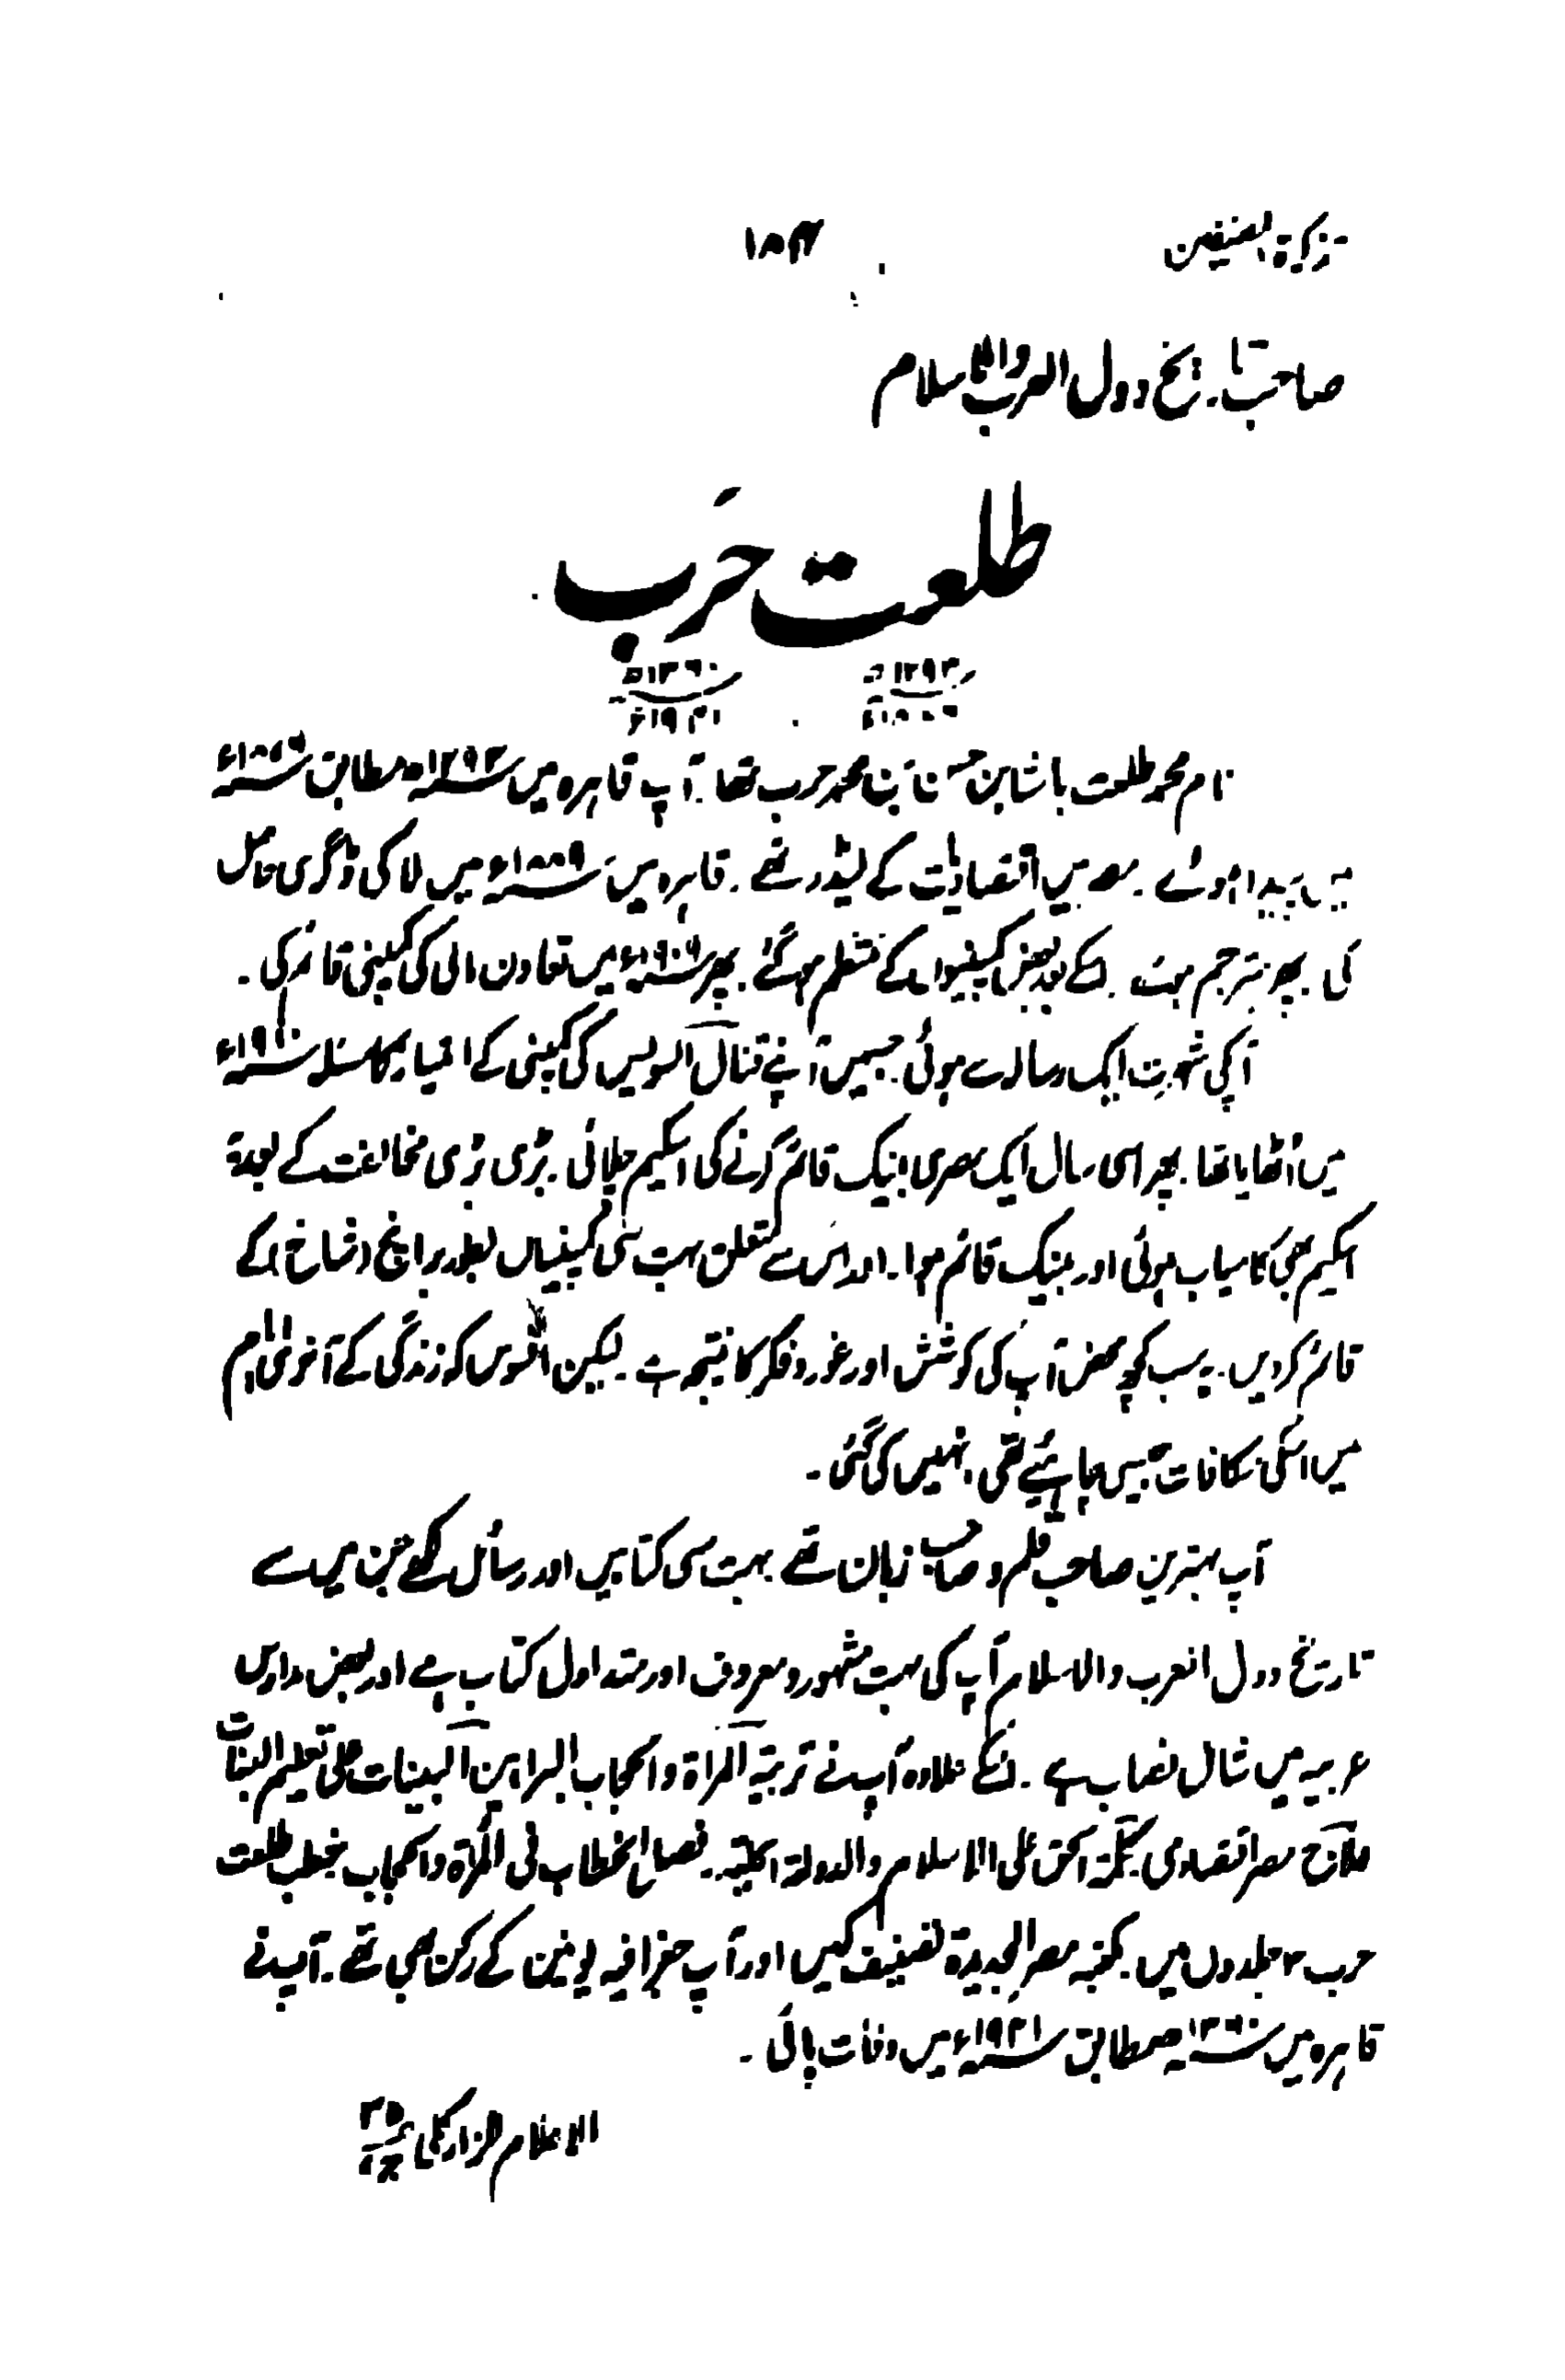 تذکرة المصنفین ۱۸۴
صاحب تاریخ دول العرب والاسلام
طلعت حَرب
۱۲۹۳ھ ۱۳۶۰ھ
۱۹۴۱ء
نام محمد طلعت باشا بن حسن تھا۔ آپ قاہرہ میں ۱۲۹۳ھ مطابق
میں پیدا ہوئے۔ مصر میں اقتصادیات کے لیڈر تھے۔ قاہرہ میں ۱۸۸۹ء میں لا کی ڈگری حاصل
کی۔ پھر مترجم ہوئے۔ اسکے بعد بعض کمپنیوں کے منتظم ہو گئے۔ پھر میں تعاون مالی کی کمپنی قائم کی۔
آپکی شہرت ایک رسالہ سے ہوئی۔ جسمیں آپنے قنال السویس کی کمپنی کے امتیاز کا مسئلہ ۱۹۱۰ء
میں اٹھایا تھا۔ پھر اسی سال ایک مصری بینک قائم کرنے کی اسکیم چلائی۔ بڑی بڑی مخالفت کے بعد
اسکیم بھی کامیاب ہوئی اور بینک قائم ہوا۔ اور اس سے متعلق بہت سی کمپنیاں بطور برانچ (شاخ) کے
قائم کر دیں۔ یہ سب کچھ محض آپ کی کوشش اور غور و فکر کا نتیجہ ہے۔ لیکن افسوس کہ زندگی کے آخری ایام
میں اسکی مکافات جیسی چاہیئے تھی۔ نہیں کی گئی۔
آپ بہترین صاحب قلم و صاحب زبان تھے۔ بہت سی کتابیں اور رسائل لکھے جن میں سے
تاریخ دول العرب والاسلام آپ کی بہت مشہور و معروف اور متداول کتاب ہے اور بعض مدارس
عربیہ میں شامل نصاب ہے۔ اسکے علاوہ آپ نے تربیة المرأة والحجاب۔ البراہین البینات علی تعلیم البنات
علاج مصر اقتصادی۔ کلمة الحق علی الاسلام والدولة العلیہ۔ فصل الخطاب فی المرأة والحجاب۔ خطب طلعت
حرب ۳ جلدوں میں۔ مصر الجدیدة تصنیف کیں اور آپ جغرافیہ یونین کے رکن بھی تھے۔ آپ نے
قاہرہ میں ۱۳۶۰ھ مطابق ۱۹۴۱ء میں وفات پائی۔
الاعلام للزرکلی